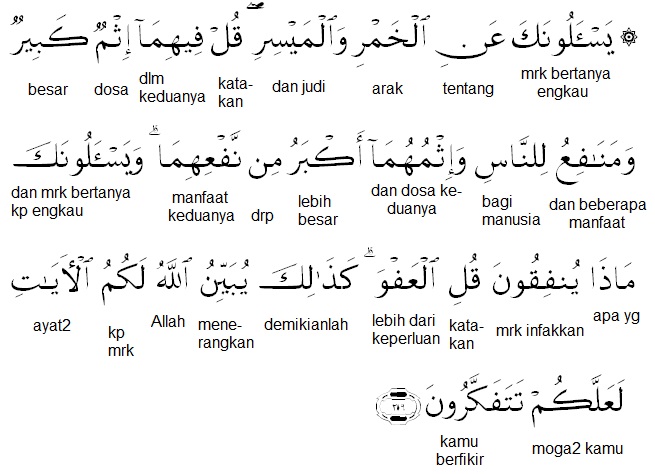 ۞ يَسْـَٔلُونَكَ عَنِ ٱلْخَمْرِ وَٱلْمَيْسِرِ ۖ قُلْ فِيهِمَآ إِثْمٌ كَبِيرٌ
mrk bertanya engkau tentang arak dan judi kata-kan dlm keduanya dosa besar
وَمَنَـٰفِعُ لِلنَّاسِ وَإِثْمُهُمَآ أَكْبَرُ مِن نَّفْعِهِمَا ۗ وَيَسْـَٔلُونَكَ
dan beberapa manfaat bagi manusia dan dosa ke-duanya lebih besar drp manfaat keduanya dan mrk bertanya kp engkau
مَاذَا يُنفِقُونَ قُلِ ٱلْعَفْوَ ۗ كَذَٰلِكَ يُبَيِّنُ ٱللَّهُ لَكُمُ ٱلْأَيَـٰتِ
apa yg mrk infakkan kata-kan lebih dari keperluan demikianlah mene-rangkan Allah kp mrk ayat2
لَعَلَّكُمْ تَتَفَكَّرُونَ
moga2 kamu kamu berfikir